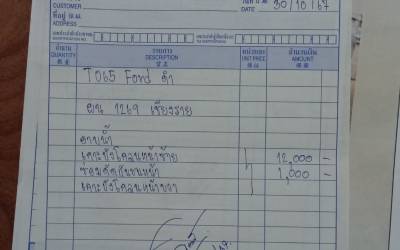 CUSTOMER
วันที่
DATE 30/10/67
ที่อยู่
ADDRESS
จำนวน
QUANTITY
รายการ
DESCRIPTION
หน่วยละ
UNIT PRICE
จำนวนเงิน
AMOUNT
T065 Ford ดำ
ผน 1269 เชียงราย
คาบน้ำ
เคาะบังโคลนหน้าซ้าย 12,000 -
ซ่อมคิ้วกันชนหน้า 1,000 -
เคาะบังโคลนหน้าขวา